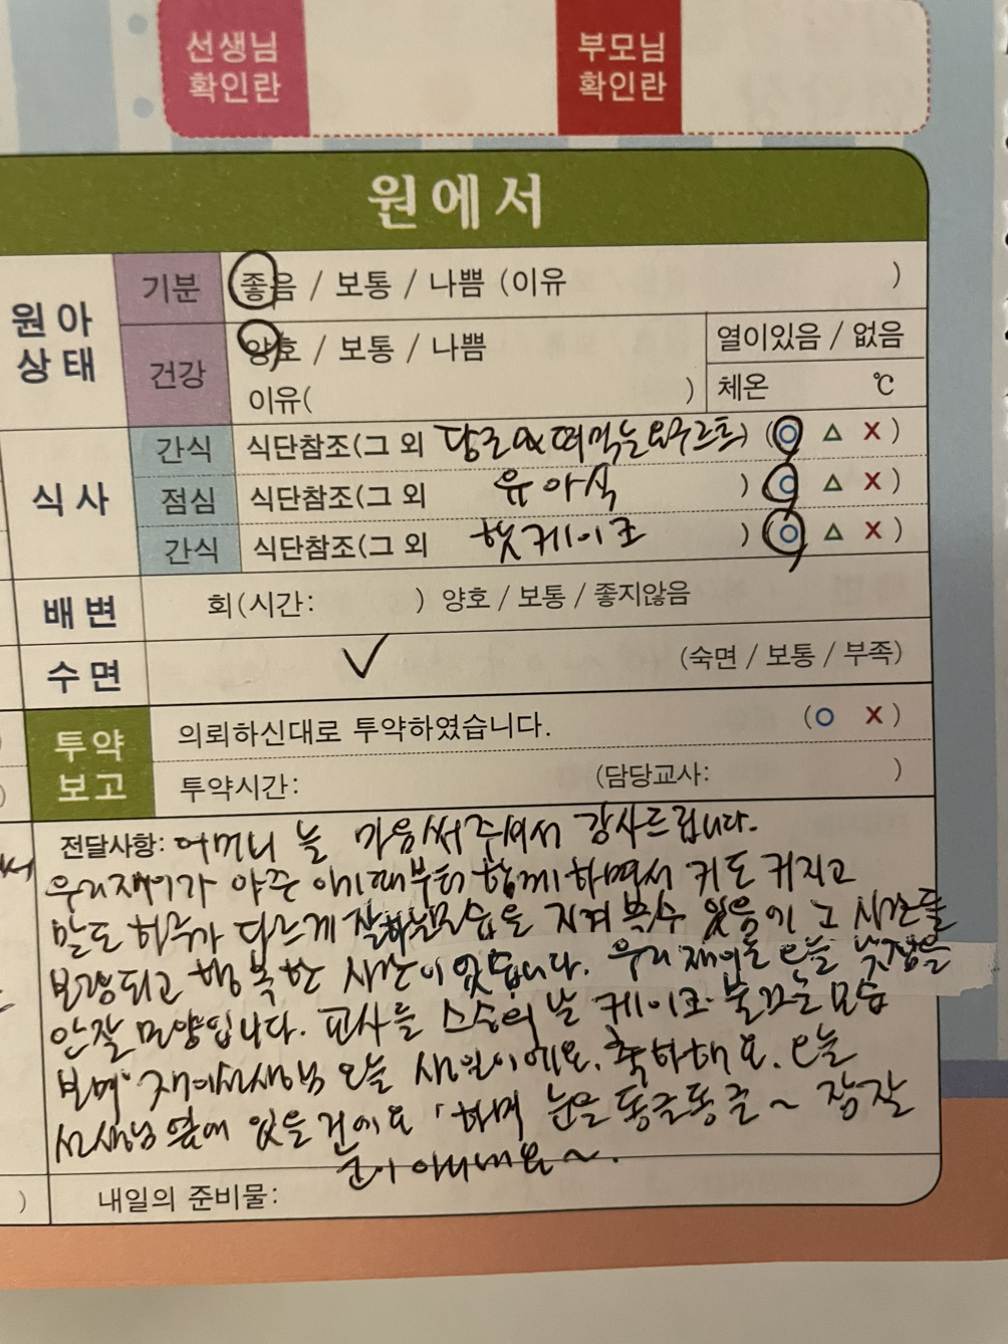 선생님 확인란
부모님 확인란
원에서
원아 상태
기분 좋음 / 보통 / 나쁨 (이유 )
건강 양호 / 보통 / 나쁨
열이있음 / 없음
이유( )
체온 ℃
식사
간식 식단참조(그 외 떠먹는요구르트) (○ △ X)
점심 식단참조(그 외 유아식 ) (○ △ X)
간식 식단참조(그 외 핫케이크 ) (○ △ X)
배변 회(시간: ) 양호 / 보통 / 좋지않음
수면 ✓ (숙면 / 보통 / 부족)
투약 보고
의뢰하신대로 투약하였습니다. (○ X)
투약시간: (담당교사: )
전달사항: 어머니 늘 마음써주셔서 감사드립니다.
우리 가 아주 아기때부터 함께하면서 키도 커지고
말도 하루가 다르게 잘하는모습을 지켜볼수 있음이 그 시간들
보람되고 행복한 시간이었습니다. 우리 오늘 낮잠을
안잘 모양입니다. 교사들 스승의 날 케이크 불끄는 모습
보며 " 선생님 오늘 생일이에요. 축하해요. 오늘
선생님 옆에 있을 건이요" 하며 눈을 동글동글~ 잠잘
눈이 아니네요~.
내일의 준비물: